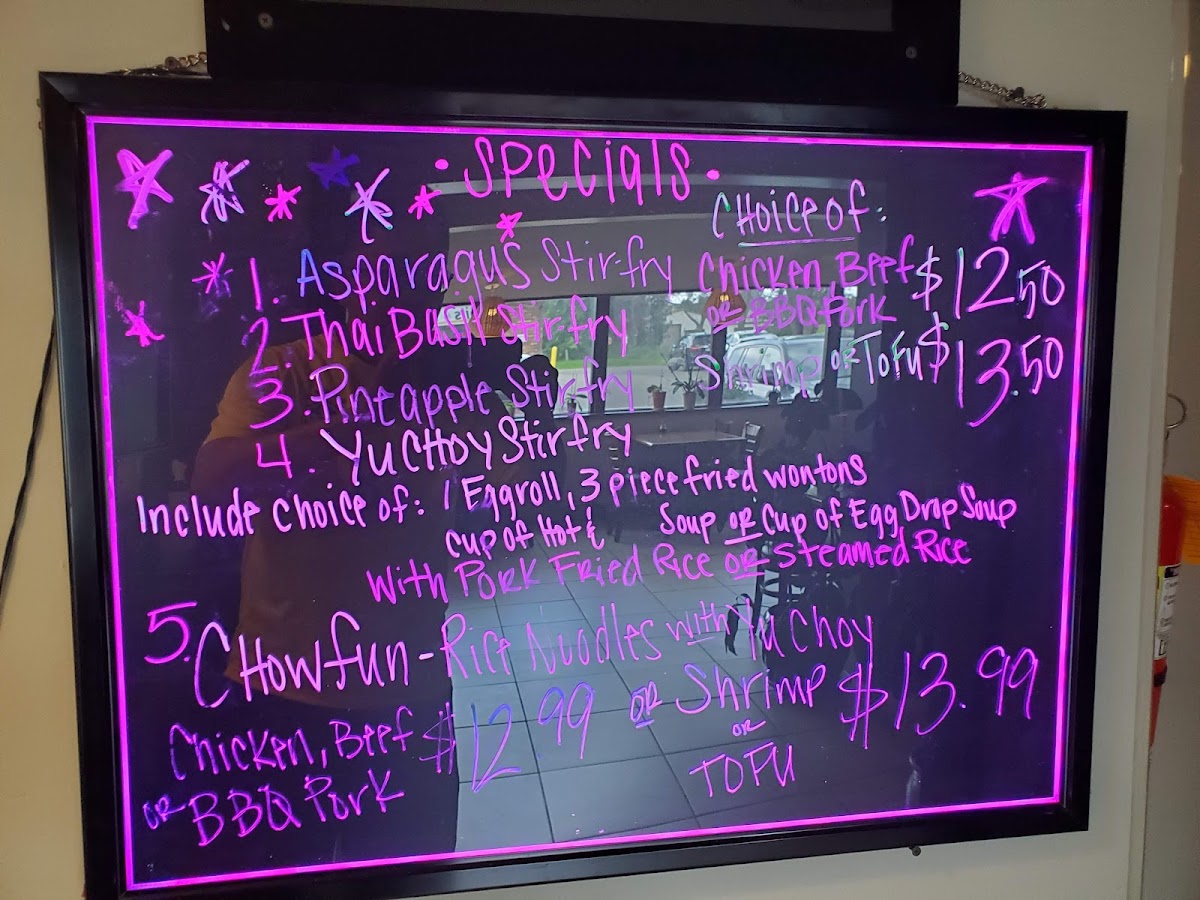 • Specials •
Choice of:
1. Asparagus Stirfry Chicken, Beef $12.50
2. Thai Basil Stirfry or BBQ Pork
3. Pineapple Stirfry Shrimp or Tofu $13.50
4. Yu Choy Stirfry
Include choice of: 1 Eggroll, 3 piece fried wontons
cup of Hot & Soup or Cup of Egg Drop Soup
With Pork Fried Rice or Steamed Rice
5. Chowfun - Rice Noodles with Yu Choy
Chicken, Beef $12.99 or Shrimp $13.99
or BBQ Pork or
TOFU